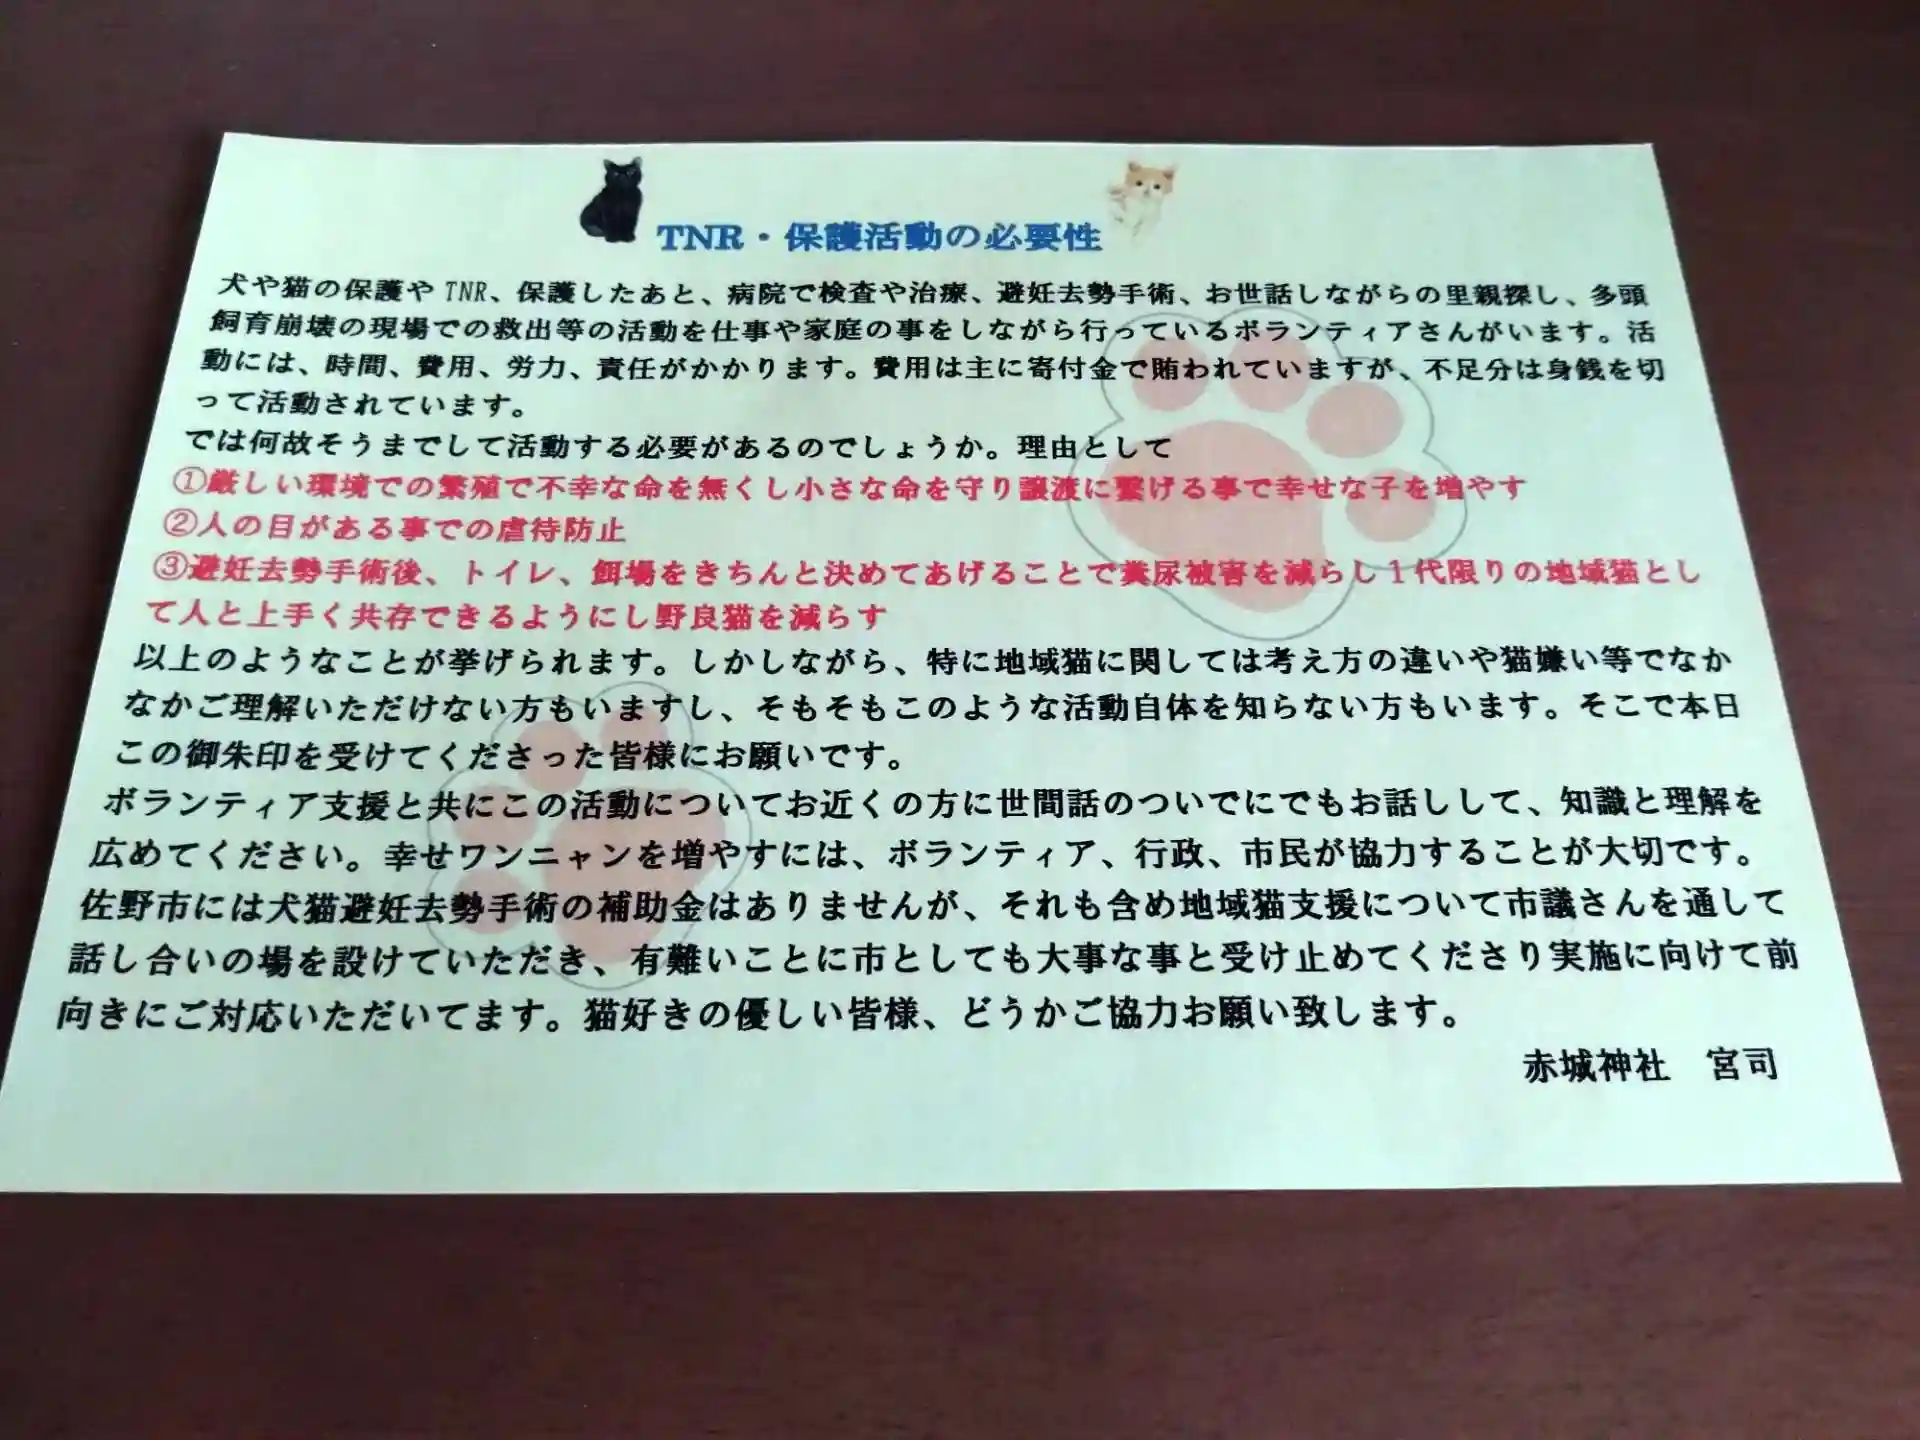 TNR・保護活動の必要性
犬や猫の保護やTNR、保護したあと、病院で検査や治療、避妊去勢手術、お世話しながらの里親探し、多頭
飼育崩壊の現場での救出等の活動を仕事や家庭の事をしながら行っているボランティアさんがいます。活
動には、時間、費用、労力、責任がかかります。費用は主に寄付金で賄われていますが、不足分は身銭を切
って活動されています。
では何故そうまでして活動する必要があるのでしょうか。理由として
①厳しい環境での繁殖で不幸な命を無くし小さな命を守り譲渡に繋げる事で幸せな子を増やす
②人の目がある事での虐待防止
③避妊去勢手術後、トイレ、餌場をきちんと決めてあげることで糞尿被害を減らし1代限りの地域猫とし
て人と上手く共存できるようにし野良猫を減らす
以上のようなことが挙げられます。しかしながら、特に地域猫に関しては考え方の違いや猫嫌い等でなか
なかご理解いただけない方もいますし、そもそもこのような活動自体を知らない方もいます。そこで本日
この御朱印を受けてくださった皆様にお願いです。
ボランティア支援と共にこの活動についてお近くの方に世間話のついでにでもお話しして、知識と理解を
広めてください。幸せワンニャンを増やすには、ボランティア、行政、市民が協力することが大切です。
佐野市には犬猫避妊去勢手術の補助金はありませんが、それも含め地域猫支援について市議さんを通して
話し合いの場を設けていただき、有難いことに市としても大事な事と受け止めてくださり実施に向けて前
向きにご対応いただいてます。猫好きの優しい皆様、どうかご協力お願い致します。
赤城神社　宮司